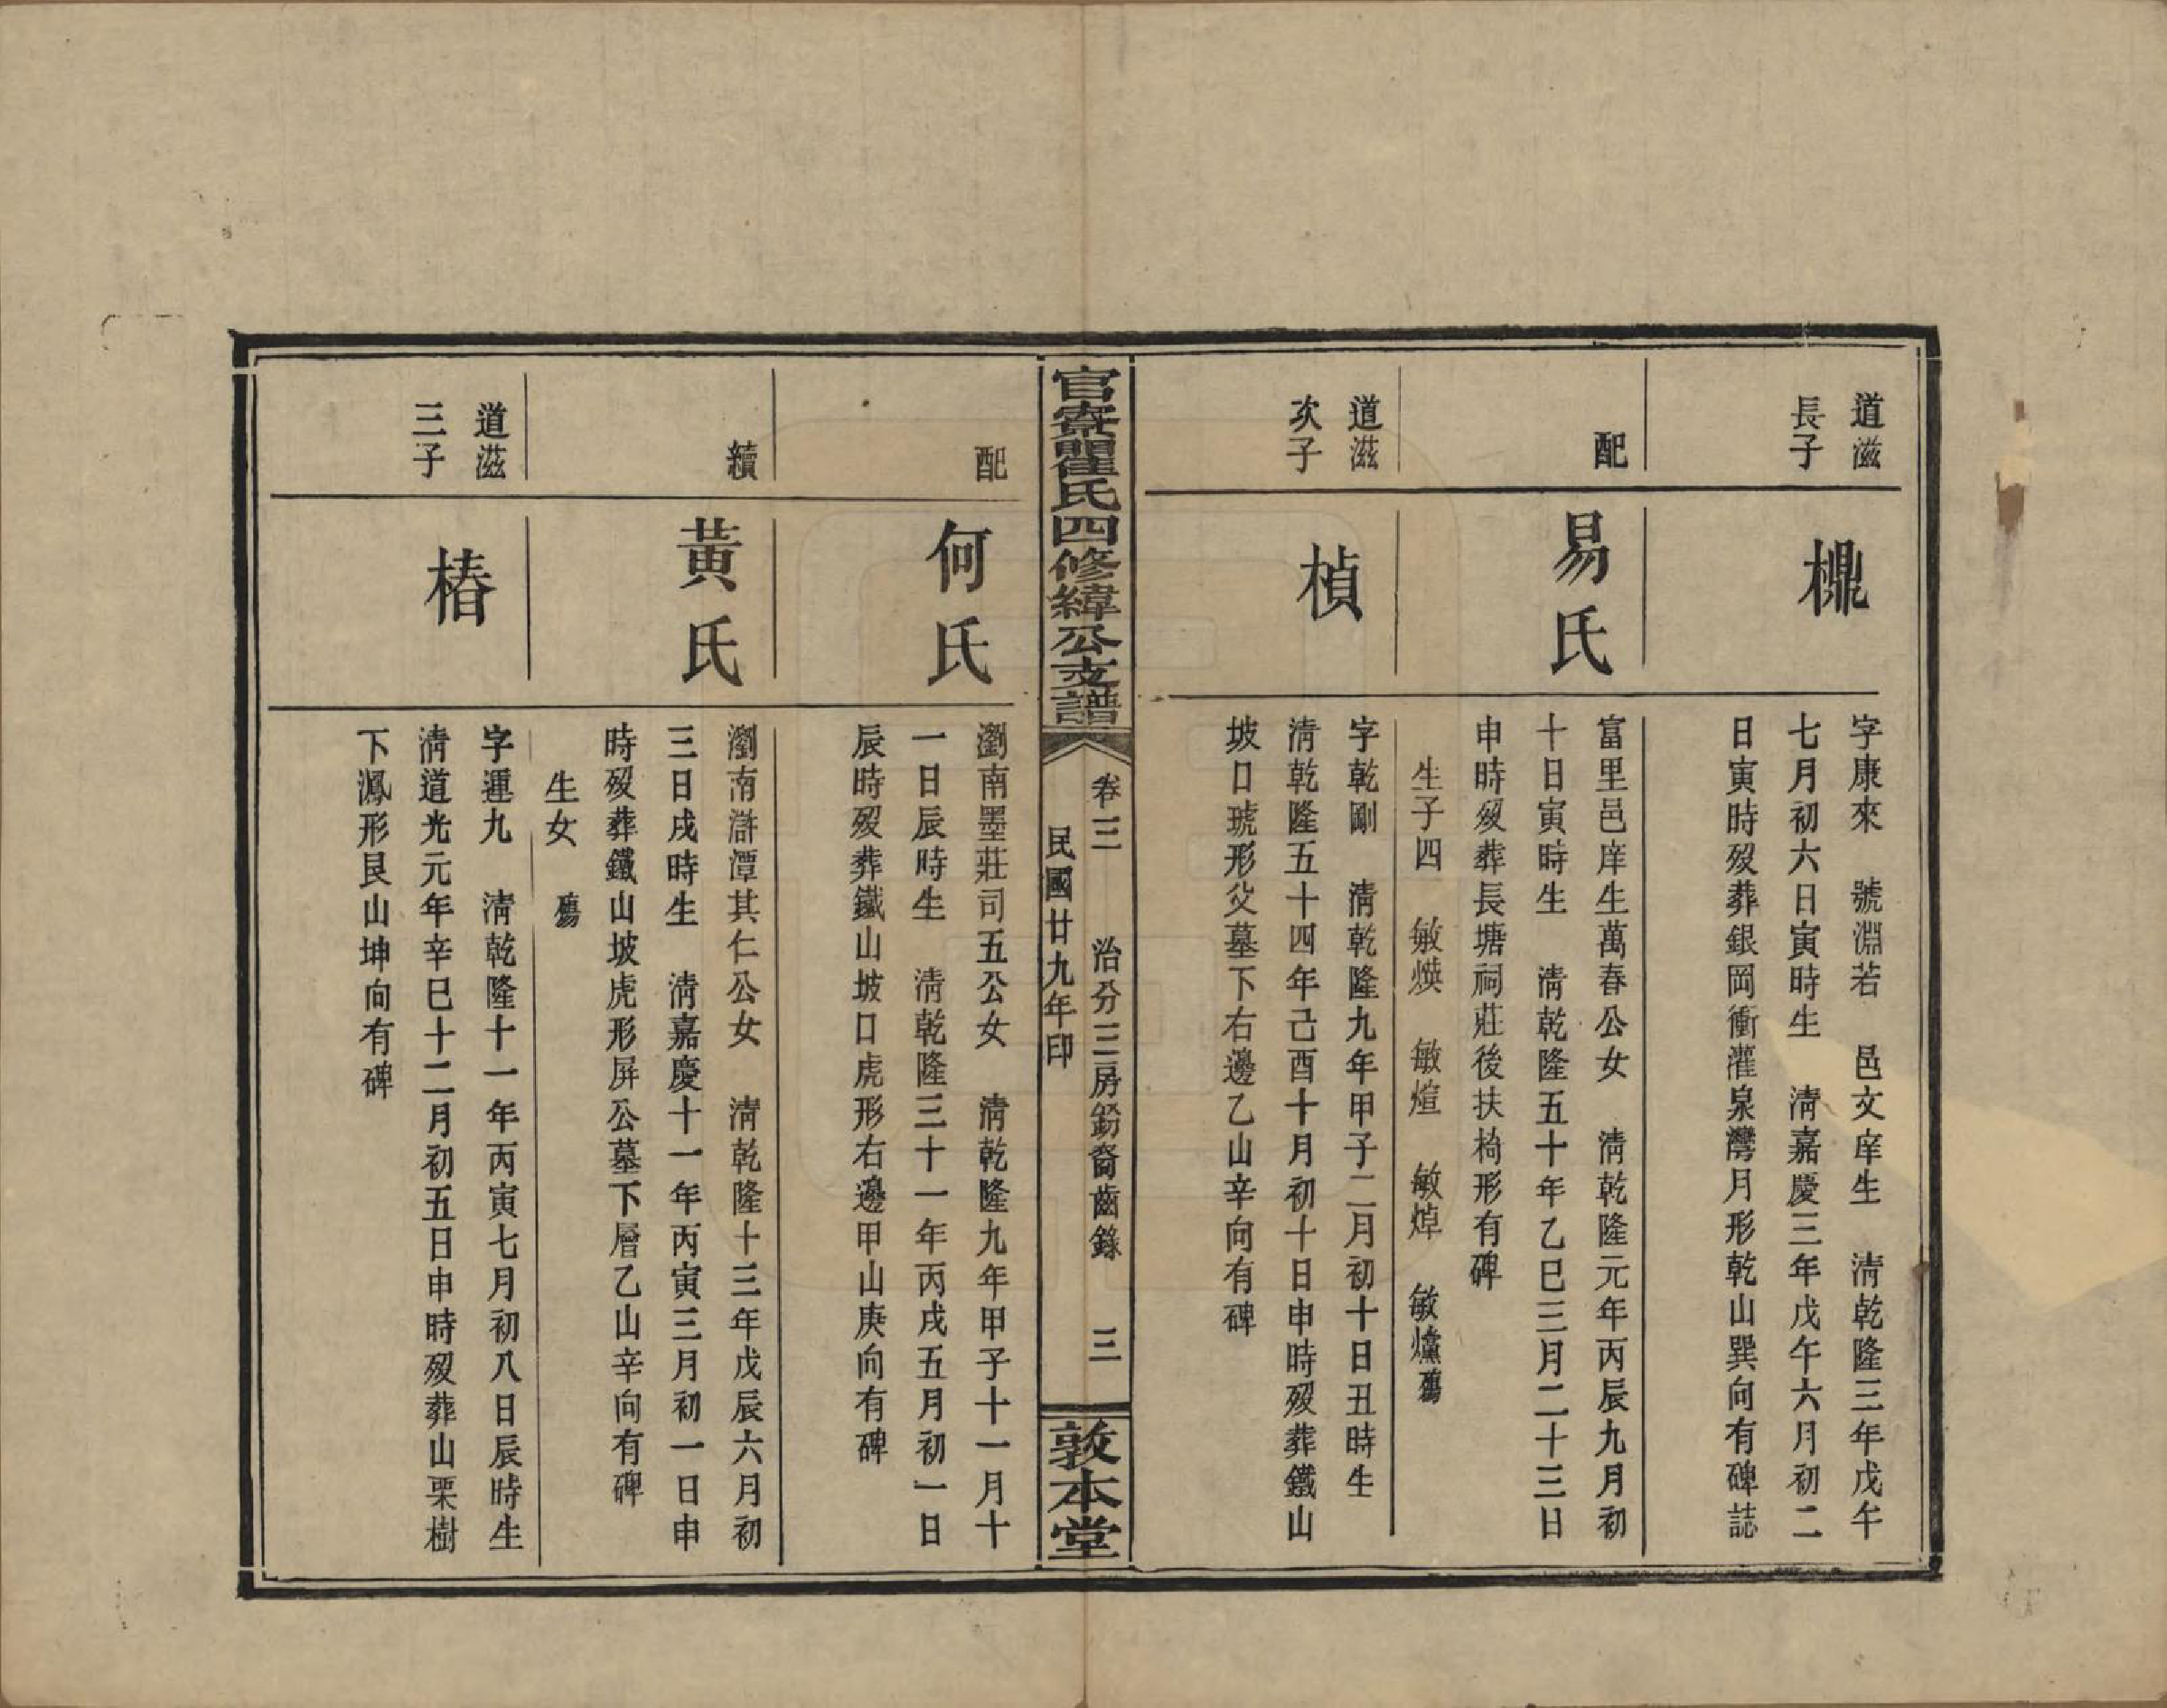 道滋
長子
㯳
字康來　號淵若　邑文庠生　清乾隆三年戊午
七月初六日寅時生　清嘉慶三年戊午六月初二
日寅時歿葬銀岡衝灌泉灣月形乾山巽向有碑誌
配
易氏
富里邑庠生萬春公女　清乾隆元年丙辰九月初
十日寅時生　清乾隆五十年乙巳三月二十三日
申時歿葬長塘祠莊後扶椅形有碑
生子四　敏煐　敏煊　敏焯　敏爞殤
道滋
次子
楨
字乾剛　清乾隆九年甲子二月初十日丑時生
清乾隆五十四年己酉十月初十日申時歿葬鐵山
坡口琥形父墓下右邊乙山辛向有碑
官寮瞿氏四修緯公支譜
卷三　治分三房釖裔齒錄　三
民國廿九年印
敦本堂
配
何氏
瀏南墨莊司五公女　清乾隆九年甲子十一月十
一日辰時生　清乾隆三十一年丙戌五月初一日
辰時歿葬鐵山坡口虎形右邊甲山庚向有碑
續
黃氏
瀏南滸潭其仁公女　清乾隆十三年戊辰六月初
三日戌時生　清嘉慶十一年丙寅三月初一日申
時歿葬鐵山坡虎形屏公墓下層乙山辛向有碑
生女　殤
道滋
三子
椿
字運九　清乾隆十一年丙寅七月初八日辰時生
清道光元年辛巳十二月初五日申時歿葬山栗樹
下鳳形艮山坤向有碑